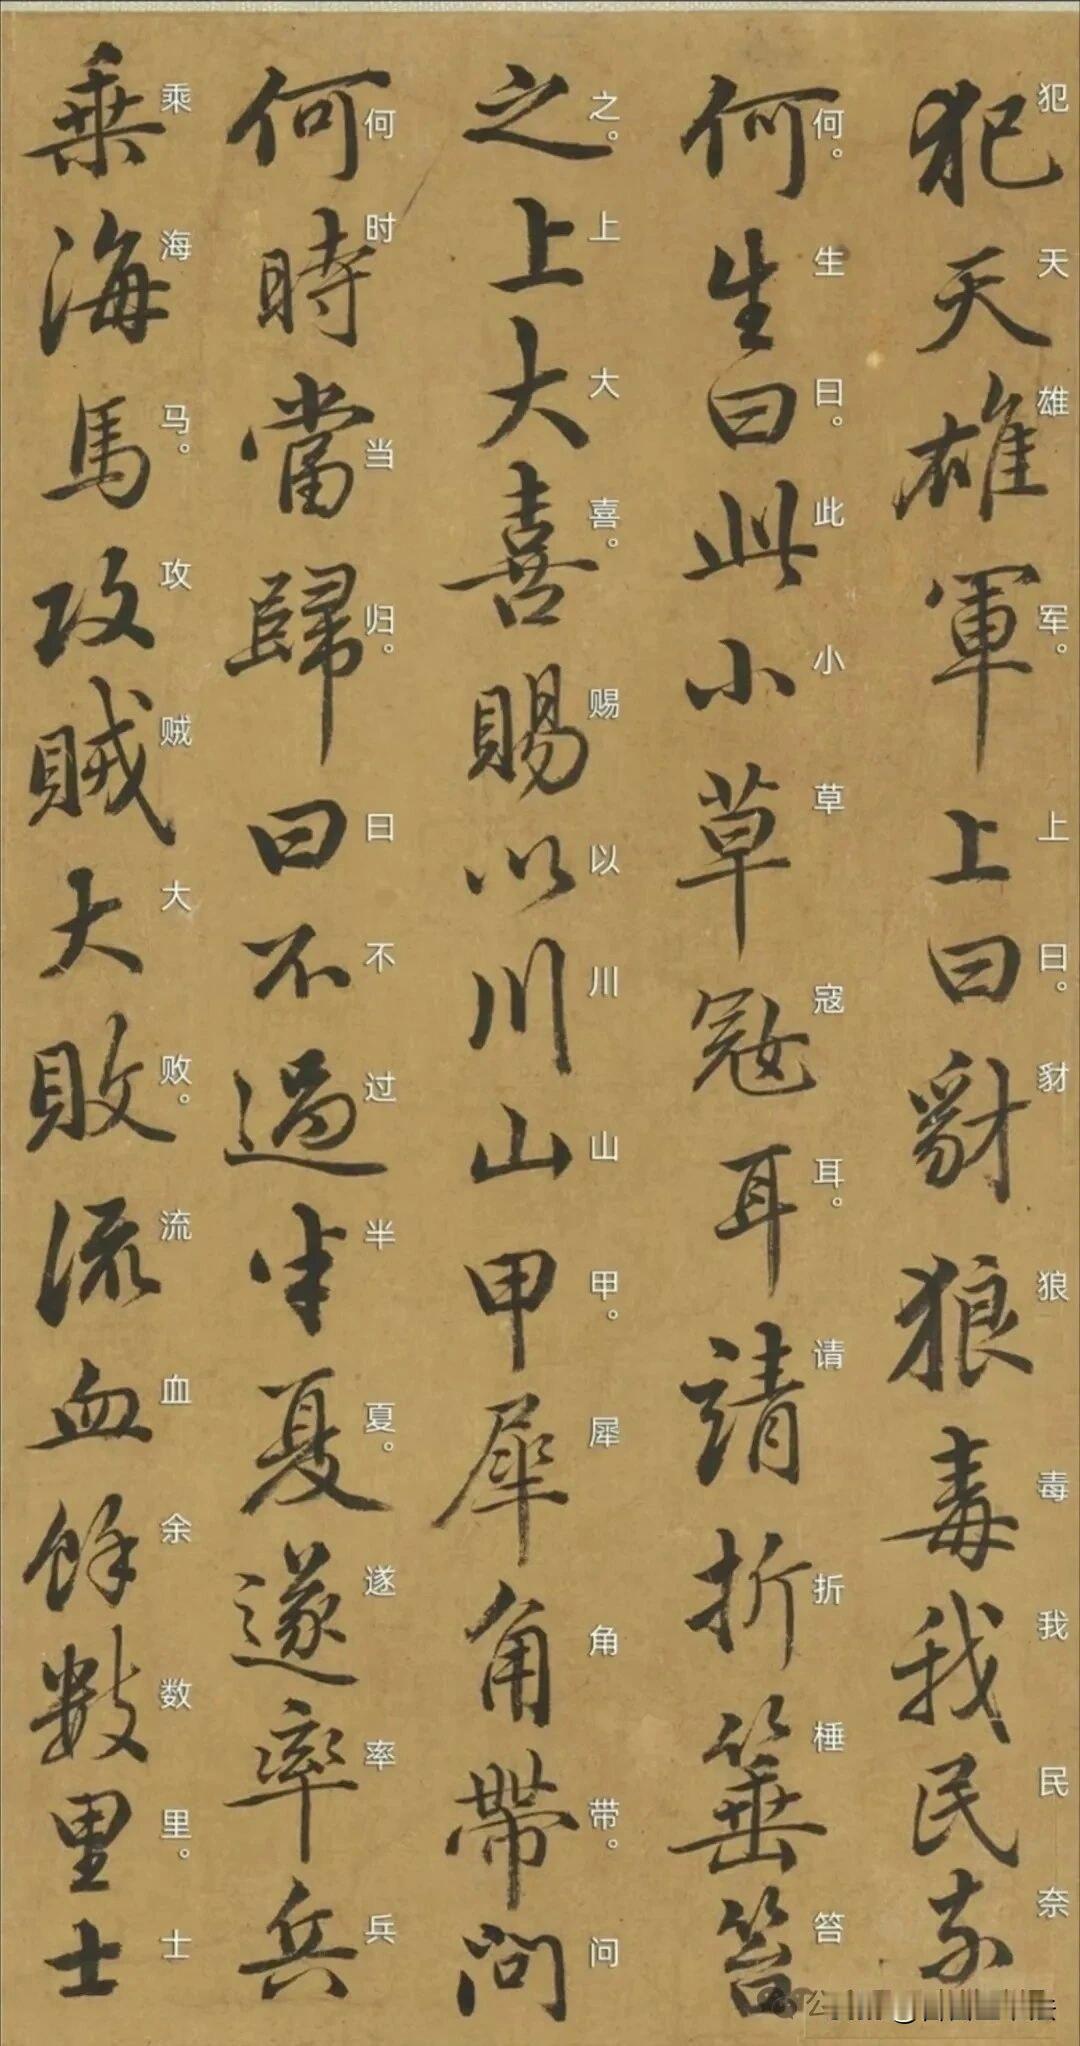 犯天雄軍上曰豺狼毒我民奈
犯天雄军。上曰。豺狼毒我民奈
何生曰此小草寇耳請折箠笞
何。生曰。此小草寇耳。请折棰笞
之上大喜賜以川山甲犀角帶問
之。上大喜。赐以川山甲。犀角带。问
何時當歸曰不過半夏遂率兵
何时当归。曰不过半夏。遂率兵
乘海馬攻賊大敗流血餘數里士
乘海马。攻贼大败。流血余数里。士